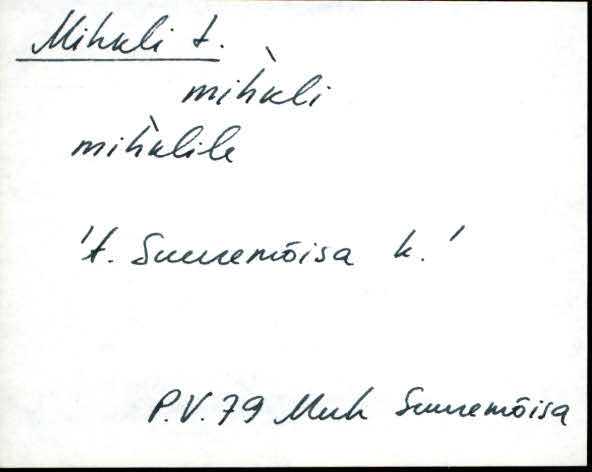 Mihkli t.
mìhkli
mìhklile
't. Suuremõisa k.'
P.V. 79 Muh Suuremõisa